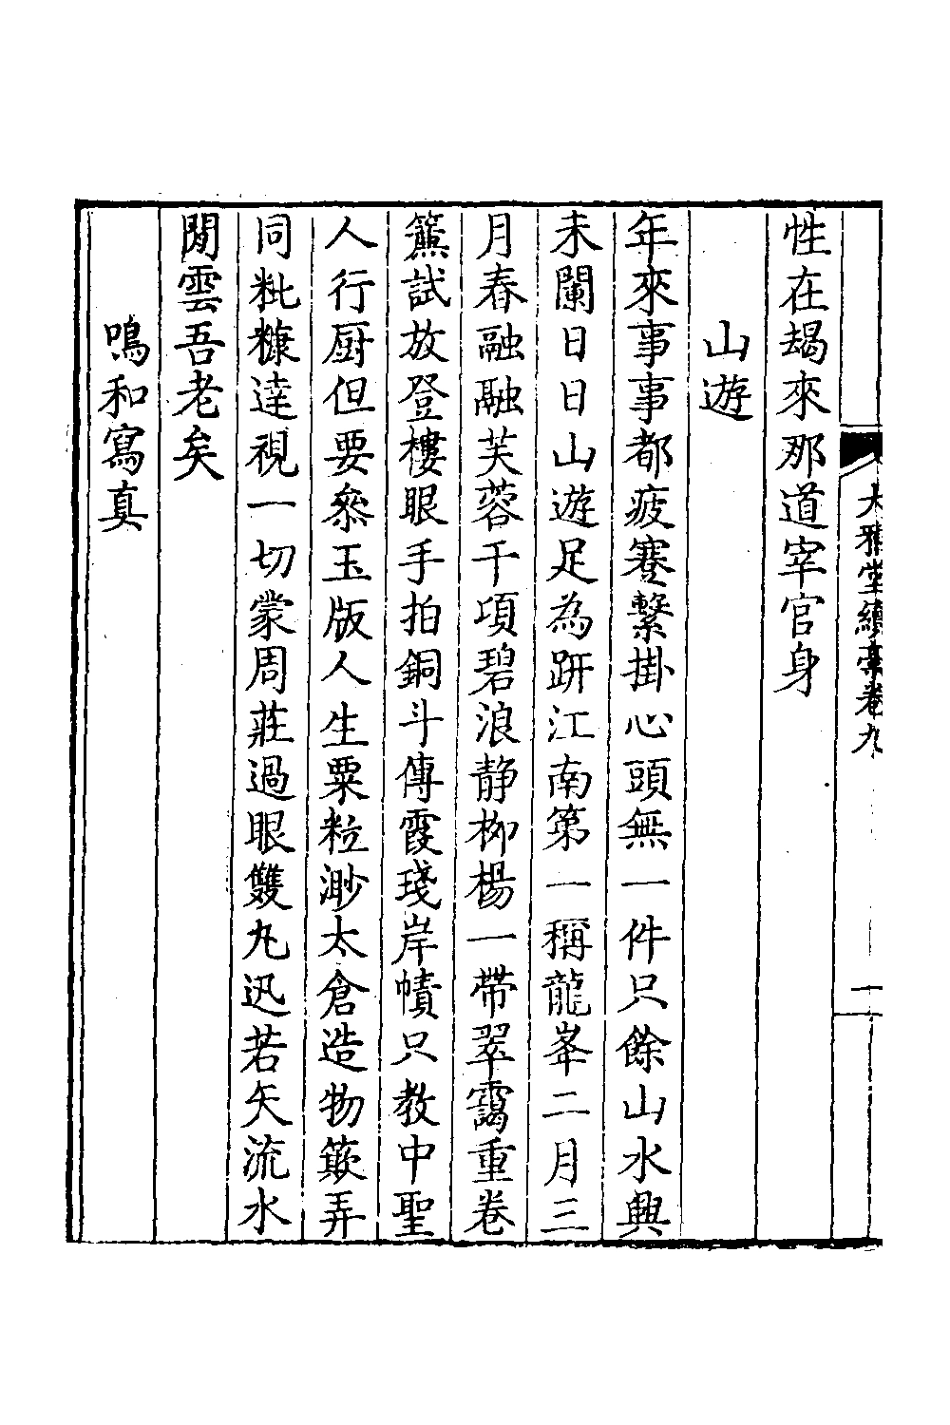 性在朅來那道宰官身
山遊
年來事事都疲蹇繫掛心頭無一件只餘山水興
未闌日日山遊足為趼江南第一稱龍峯二月三
月春融融芙蓉千項碧浪静栁楊一帶翠靄重卷
簾試放登樓眼手拍銅斗傳霞琖岸幘只教中聖
人行厨但要叅玉版人生粟粒渺太倉造物簸弄
同粃糠達視一切蒙周莊過眼雙丸迅若矢流水
閒雲吾老矣
鳴和寫真
大雅堂續藁卷九
一